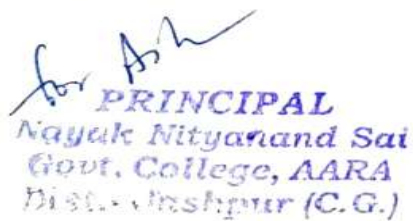 for
PRINCIPAL
Nayak Nityanand Sai
Govt. College, AARA
Dist.- Jashpur (C.G.)